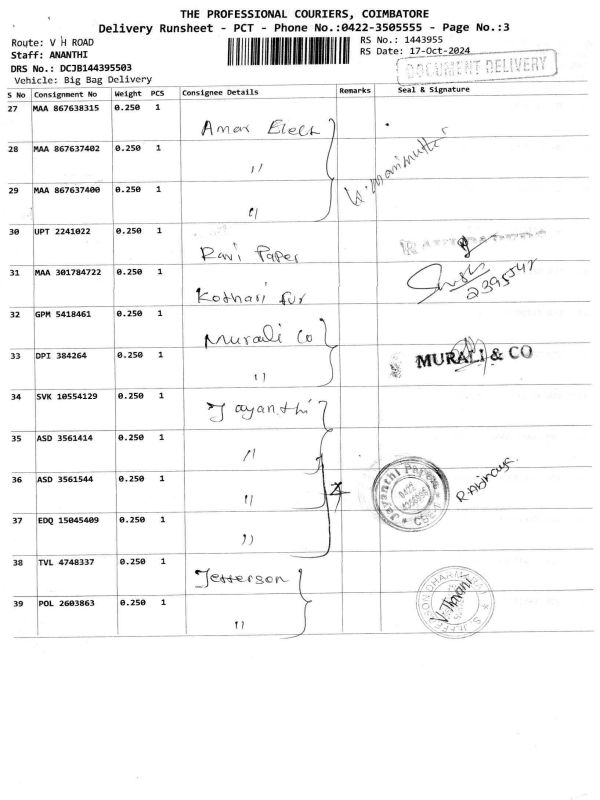 THE PROFESSIONAL COURIERS, COIMBATORE
Delivery Runsheet - PCT - Phone No.:0422-3505555 - Page No.:3
Route: V H ROAD
RS No.: 1443955
Staff: ANANTHI
RS Date: 17-Oct-2024
DRS No.: DCJB144395503
DOCUMENT DELIVERY
Vehicle: Big Bag Delivery
S No Consignment No Weight PCS Consignee Details Remarks Seal & Signature
27 MAA 867638315 0.250 1
Amar Elect
28 MAA 867637402 0.250 1
"
29 MAA 867637400 0.250 1
"
30 UPT 2241022 0.250 1
Ravi Paper
31 MAA 301784722 0.250 1
Kothari fur
32 GPM 5418461 0.250 1
Murali Co
33 DPI 384264 0.250 1
"
MURALI & CO
34 SVK 10554129 0.250 1
Jayanthi
35 ASD 3561414 0.250 1
"
36 ASD 3561544 0.250 1
"
Jayanthi Papers
37 EDQ 15045409 0.250 1
"
38 TVL 4748337 0.250 1
Jefferson
39 POL 2603863 0.250 1
"